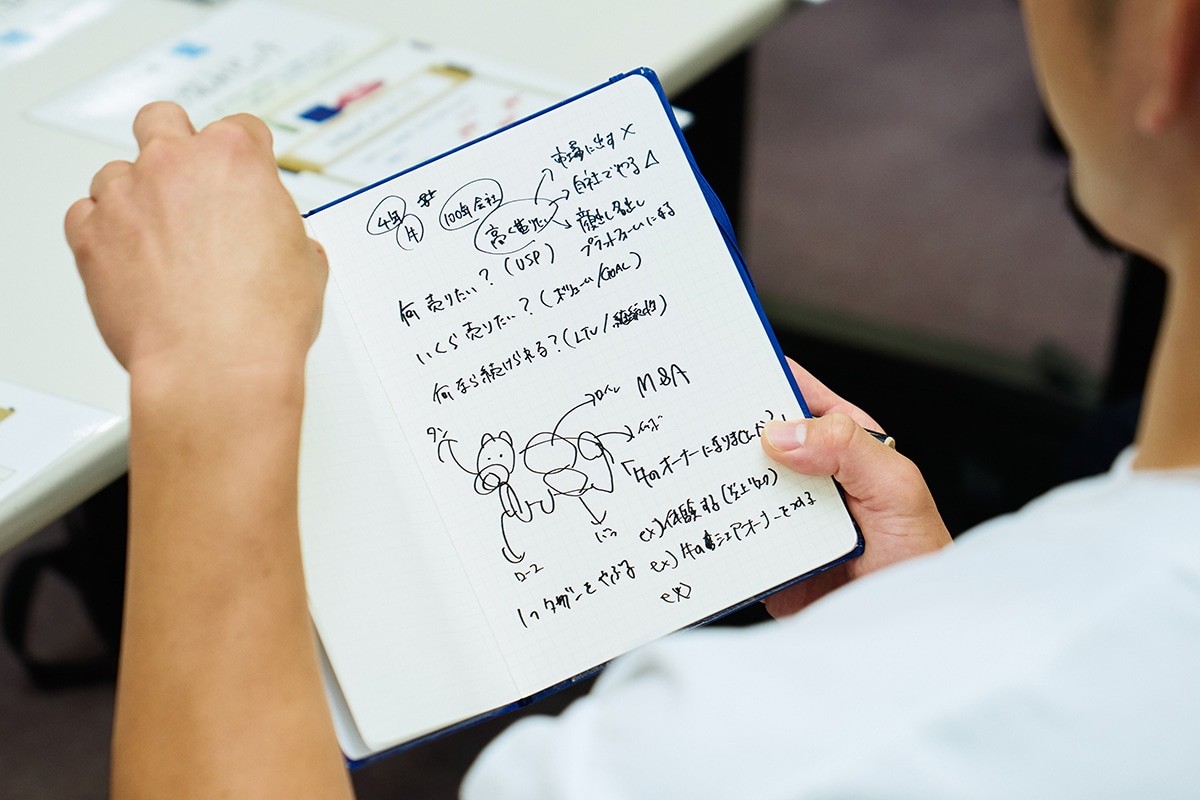 市場に出す ×
4年 100年会社 自社でやる △
牛 高く売りたい 顔出し名出し
プラットフォームになる
何売りたい？(USP)
いくら売りたい？(ボリューム/GOAL)
何なら続けられる？(LTV/継続的)
ロイン M&A
タン
「牛のオーナーになりませんか？」
ex)体験する
ロース ex)牛のシェアオーナーをつのる
1つ をやぶる
ex)